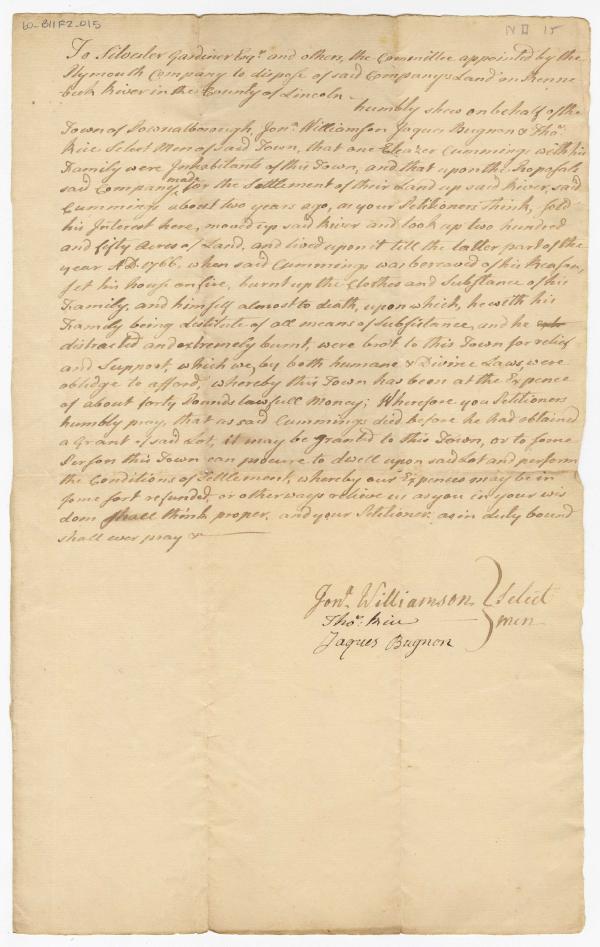 LO-B11F2-015
N II 15
To Silvester Gardiner Esqr. and others, the Committee appointed by the
Plymouth Company to dispose of said Companys Land on Kenne
-beck River in the County of Lincoln.
humbly shew on behalf of the
Town of Pownalborough, Jona. Williamson Jaques Bugnon & Tho.
Rice Select Men of said Town, that one Eleazer Cummings with his
Family were Inhabitants of this Town, and that upon the Proposals
said Company made for the Settlement of their Land up said River, said
Cummings about two years ago, as your Petitioners think, sold
his Interest here, moved up said River and took up two hundred
and fifty Acres of Land, and lived upon it till the latter part of the
year A.D. 1766. when said Cummings was bereaved of his Reason,
set his house on fire, burnt up the Clothes and Substance of his
Family, and himself almost to death, upon which, he with his
Family being destitute of all means of Subsistance, and he
distracted and extremely burnt, were brot to this Town for relief
and Support, which we, by both humane & Divine Laws, were
oblidge to afford, whereby this Town has been at the Expence
of about forty Pounds lawfull Money; Wherefore you Petitioners
humbly pray, that as said Cummings died before he had obtained
a Grant of said Lot, it may be granted to this Town, or to some
Person this Town can procure to dwell upon said Lot and perform
the Conditions of Settlement, whereby our Expences may be in
some sort refunded, or otherways relive us as you in your wis
dom shall think proper. and your Petitioners as in duty bound
shall ever pray &
Jona. Williamson
Tho. Rice
Jaques Bugnon
Select
men